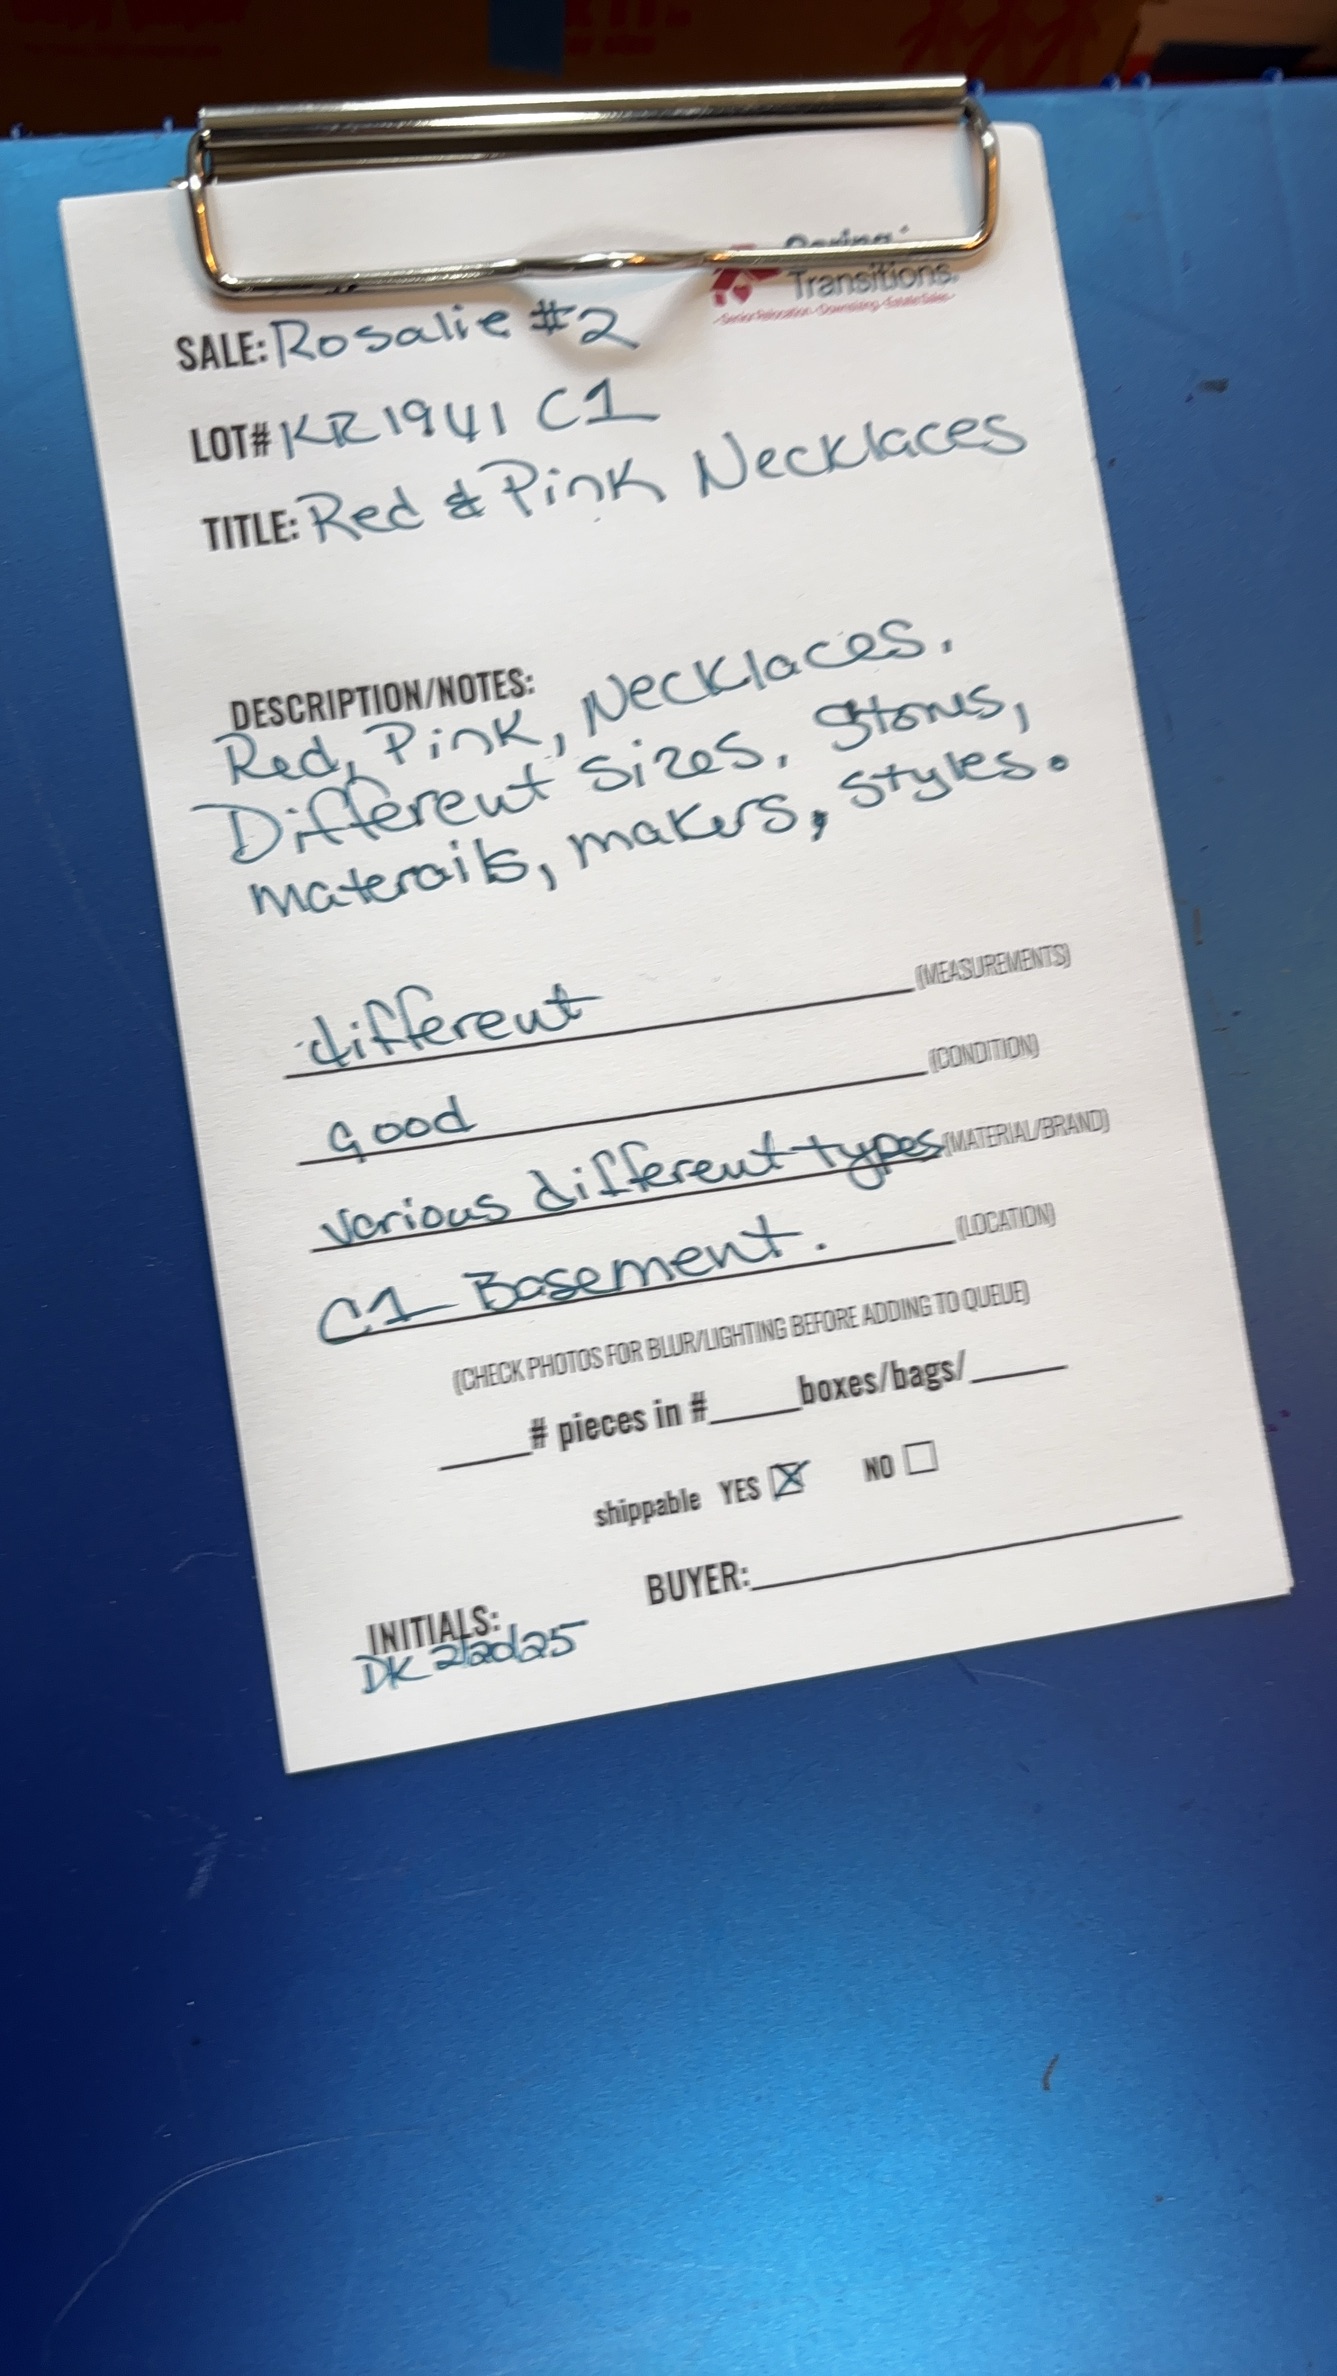 Caring
Transitions.
-Senior Relocation · Downsizing · Estate Sales-
SALE: Rosalie #2
LOT# KR1941 C1
TITLE: Red & Pink Necklaces
DESCRIPTION/NOTES:
Red, Pink, Necklaces.
Different sizes. Stones,
materails, makers, styles.
different (MEASUREMENTS)
Good (CONDITION)
various different types (MATERIAL/BRAND)
C1 Basement. (LOCATION)
(CHECK PHOTOS FOR BLUR/LIGHTING BEFORE ADDING TO QUEUE)
____# pieces in #____boxes/bags/____
shippable YES ☒ NO ☐
BUYER:
INITIALS:
DK 2/20/25